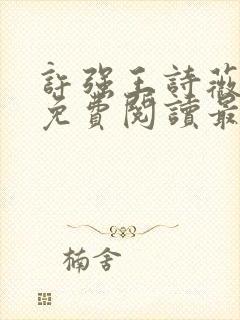 許强王詩薇
免費閱讀最
楠舍